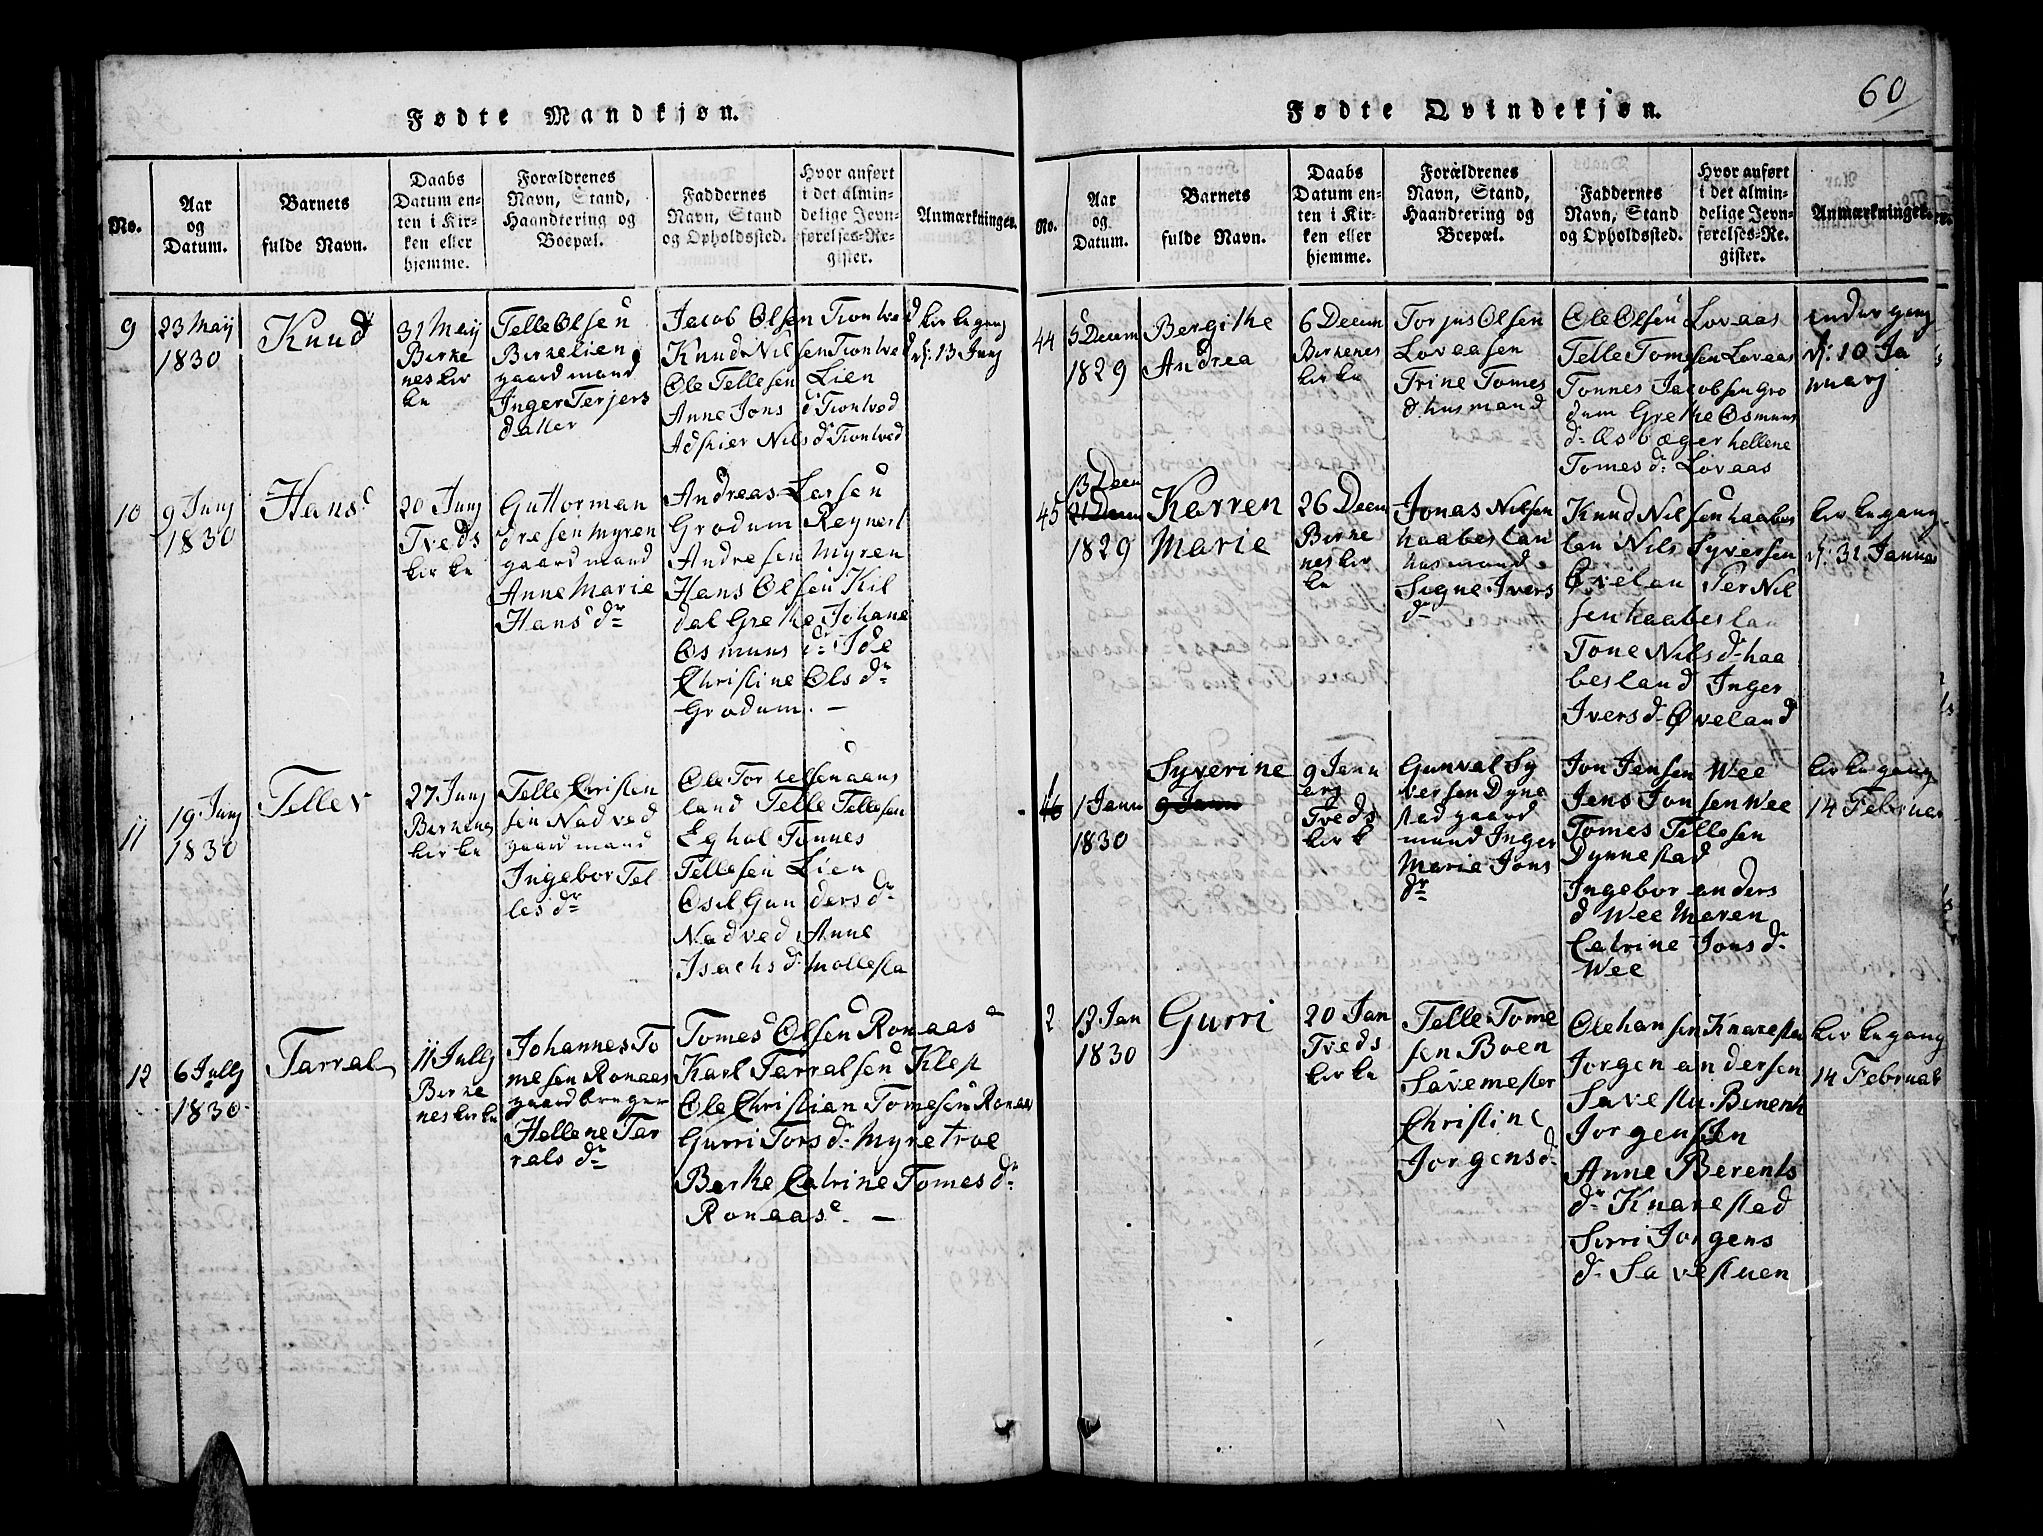 Fødte Mandkjøn.
No.
Aar
og
Datum.
Barnets
fulde Navn.
Daabs
Datum en-
ten i Kir-
ken eller
hjemme.
Forældrenes
Navn, Stand,
Haandtering og
Boepæl.
Faddernes
Navn, Stand
og Opholdssted.
Hvor anført
i det almin-
delige Jevn-
førelses-Re-
gister.
Anmærkninger.
9
23 Maij
1830
Knud
31 Maij
Birke
nes kir
ke
Telle Olsen
Birkelien
gaardmand
Inger Terjers
datter
Jacob Olsen Tiontved
Knud Nilsen Tiontved
Ole Tellesen Lien
Anne Jons d Tiontved
Adshier Nils d Tiontved
kirkegang
d: 13 Junj
10
9 Junj
1830
Hans
20 Junj
Tveds
kirke
Guttorman
dresen Myren
gaardmand
Anne Marie
Hans dr
Andreas Larsen
Grodum Reynert
Andresen Myren
Hans Olsen Kil
dal Grethe Johane
Osmuns dr Ide
Christine Ols dr
Grodum. —
11
19 Junj
1830
Tellev
27 Junj
Birkenes
kirke
Telle Christen
sen Nadved
gaardmand
Ingebor Tel
les dr
Ole Torkelsen aans
land Telle Tellesen
Eghol Tonnes
Tellesen Lien
Osel Gunders d
Nadved Anne
Isachs d Mollesta
12
6 Jullj
1830
Tarral
11 Jullj
Birke
nes kirke
Johannes To
mesen Ronaas
gaardbruger
Hellene Tar
rals dr
Tomes Olsen Ronaas
Karl Tarralsen Klep
Ole Christian Tomesen Ronaas
Gurri Tors d Myretroe
Berthe Catrine Tomes d
Ronaas. —
60
Fødte Qvindekjøn.
No.
Aar
og
Datum.
Barnets
fulde Navn.
Daabs
Datum en-
ten i Kir-
ken eller
hjemme.
Forældrenes
Navn, Stand,
Haandtering og
Boepæl.
Faddernes
Navn, Stand
og Opholdssted.
Hvor anført
i det almin-
delige Jevn-
førelses-Re-
gister.
Anmærkninger.
44
5 Decem
1829
Bergithe
Andrea
6 Decem
Birkenes
kirke
Torjus Olsen
Lovaasen
Trine Tomes
d husmand
Ole Olsen Lovaas
Telle Tomesen Lovaas
Tonnes Jacobsen Gro
dum Grethe Osmuns
d Æsbæger hellene
Tomes d: Lovaas
d: 10 Ja
nuarj
45
13 Decem
21 Decem
1829
Karren
Marie
26 Decem
Birke
nes kir
ke
Jonas Nilsen
haabeslan
husmand
Signe Ivers
dr
Knud Nilsen haabes
lan Nils Syversen
Øvelan Per Nil
sen haabeslan
Tone Nils d haa
besland Inger
Ivers d Øveland
kirkegang
d: 31 Januar
46
1 Janu
1830
Syverine
9 Janu
9 Janu
arj
Tveds
kirk
Gunval Sy
versen Dyne
stad gaard
mand Inger
Marie Jons
dr
Jon Jensen Wee
Jens Jonsen Wee
Tomes Tellesen
Dynnestad
Ingebor anders
d Wee Maren
Catrine Jons d
Wee
kirkegang
14 Februar
2
12 Jan
1830
Gurri
20 Jan
Tveds
kirke
Telle Tome
sen Boen
Savemester
Christine
Jorgens d
Ole hansen Knarestad
Jorgen andersen
Savestu Berent
Jorgensen
Anne Berents
dr Knarestad
Sirri Jorgens
d Savestuen
kirkegang
14 Februar